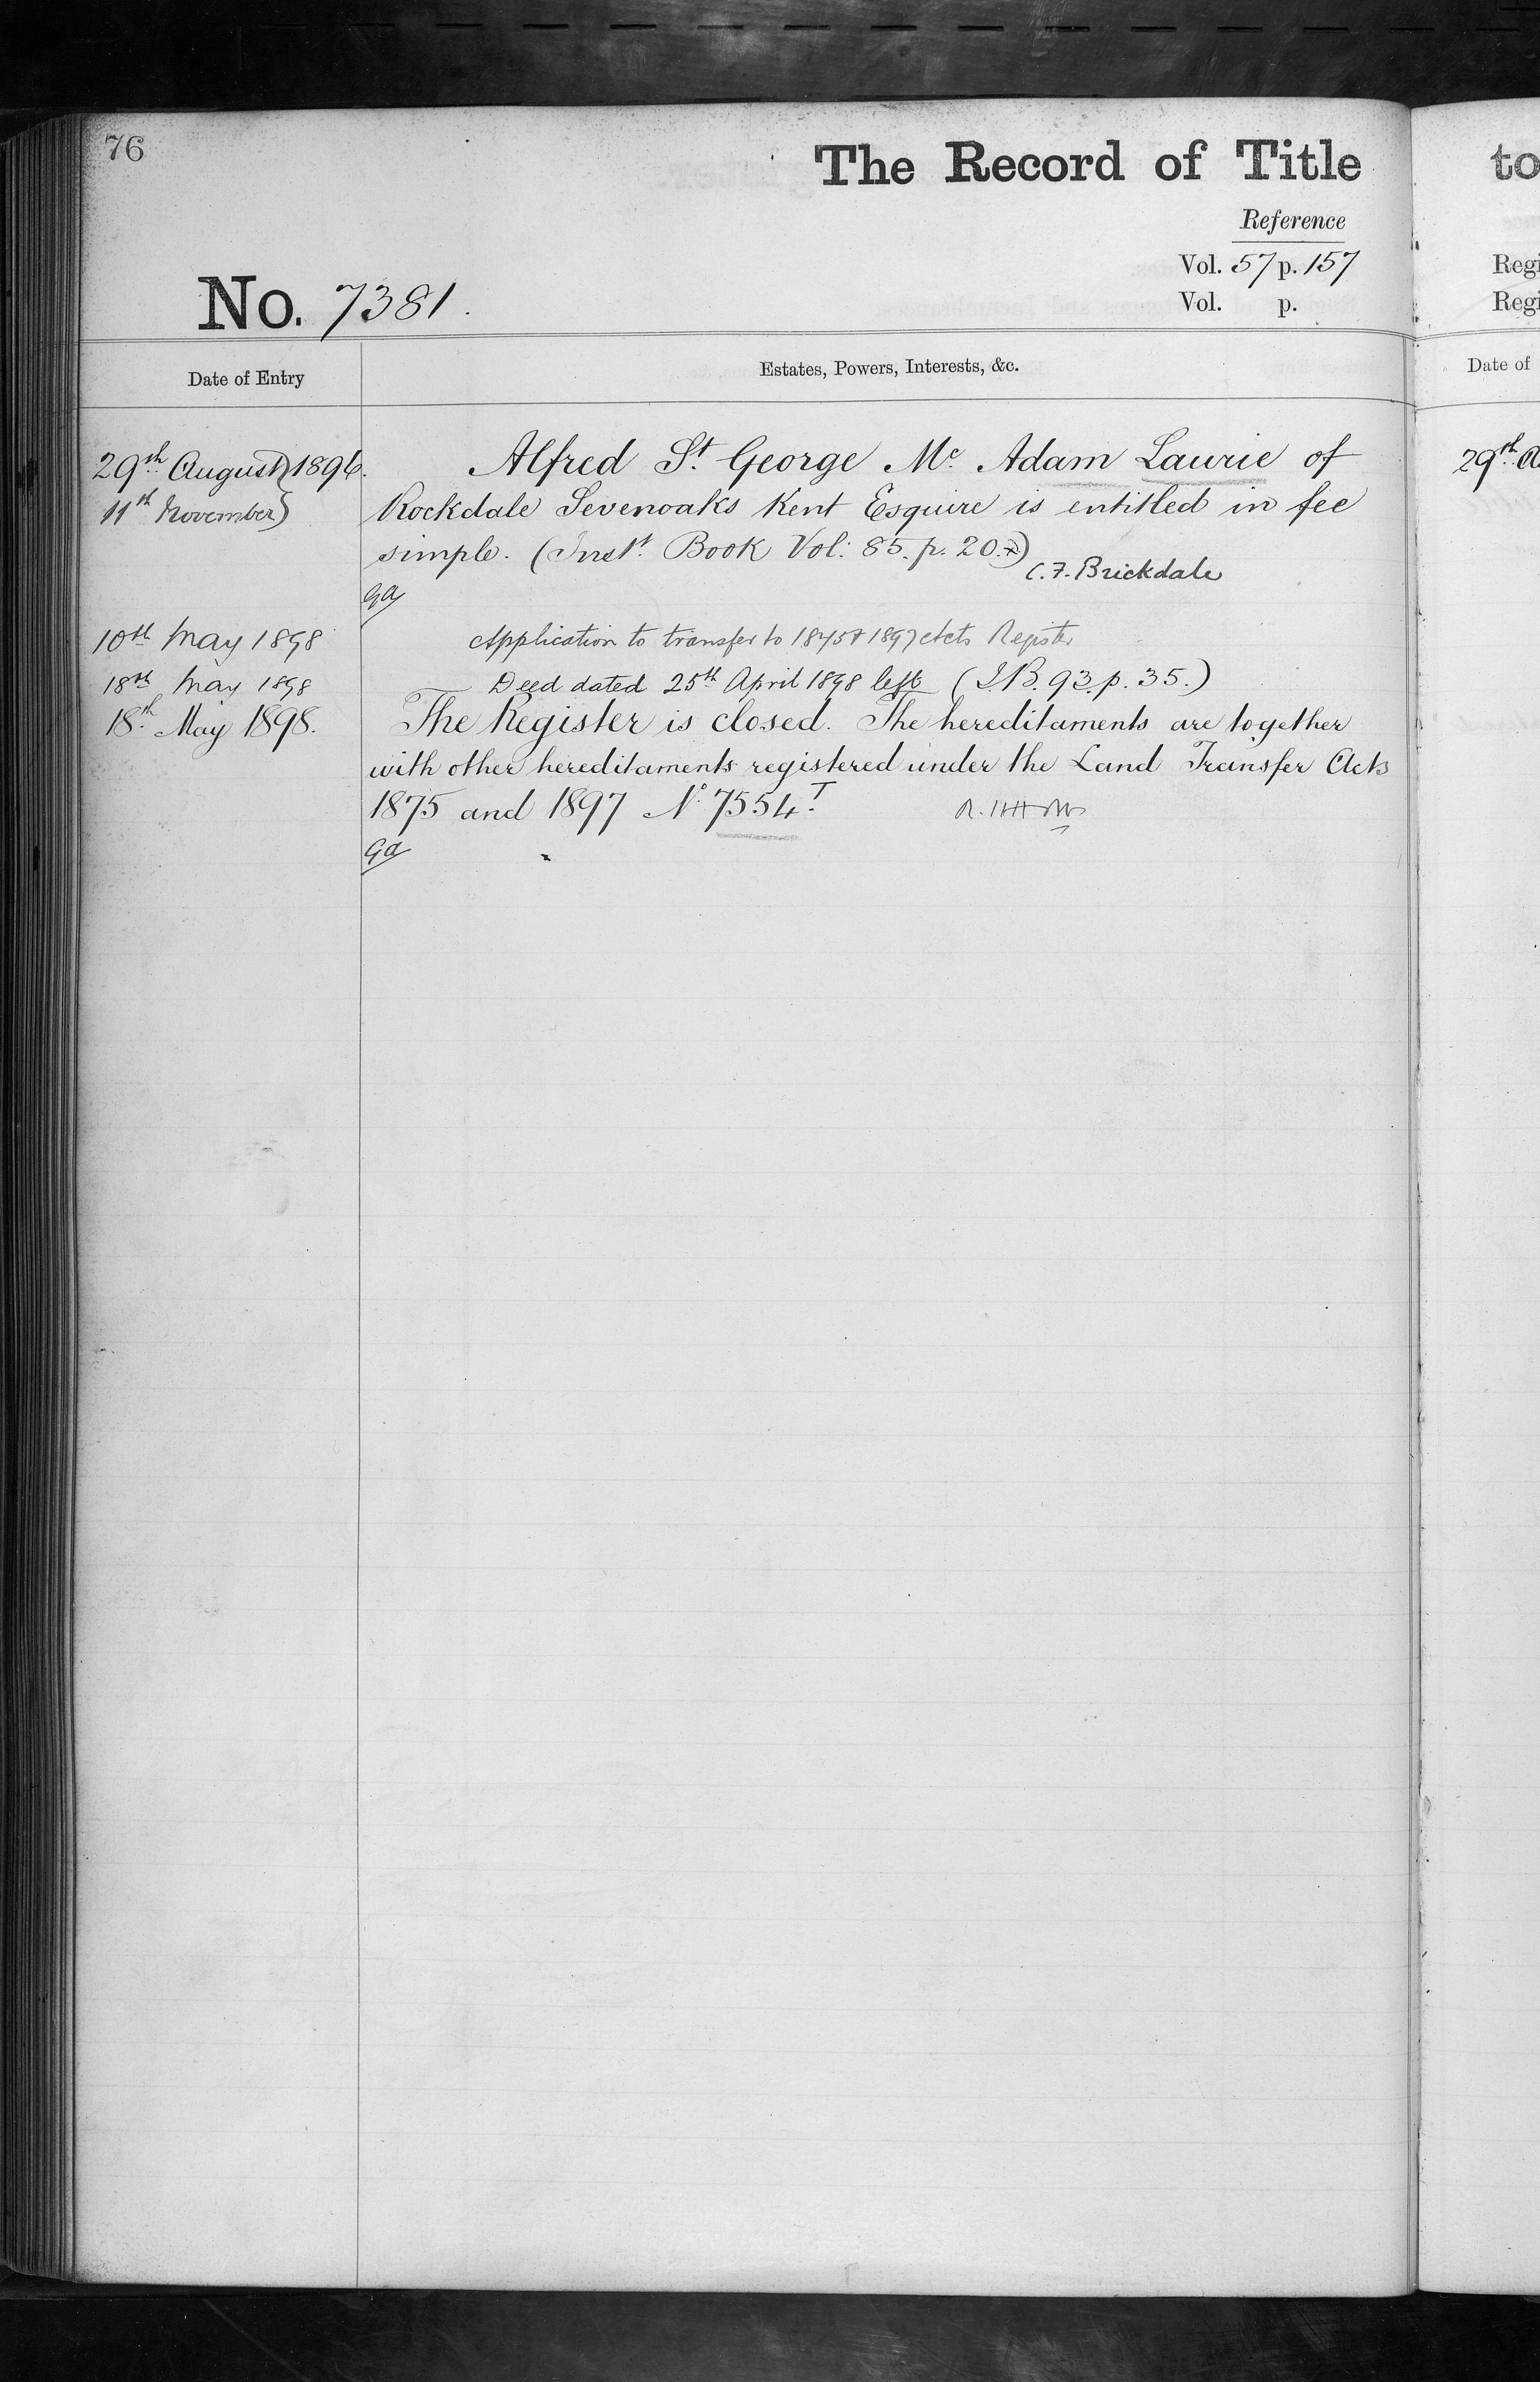 76
The Record of Title
Reference
Vol. 57 p. 157
Vol. p.
No. 7381.
Date of Entry
Estates, Powers, Interests, &c.
29th August } 1896.
11th November }
Alfred St. George Mc. Adam Laurie of
Rockdale Sevenoaks Kent Esquire is entitled in fee
simple. (Inst. Book Vol: 85. p. 20.)
C. F. Brickdale
10th May 1898
Application to transfer to 1875 & 1897 Acts Register
18th May 1898
Deed dated 25th April 1898 left (I.B. 93. p. 35.)
18th May 1898.
The Register is closed. The hereditaments are together
with other hereditaments registered under the Land Transfer Acts
1875 and 1897 No. 7554T.
to
Regi
Regi
Date of
29th A